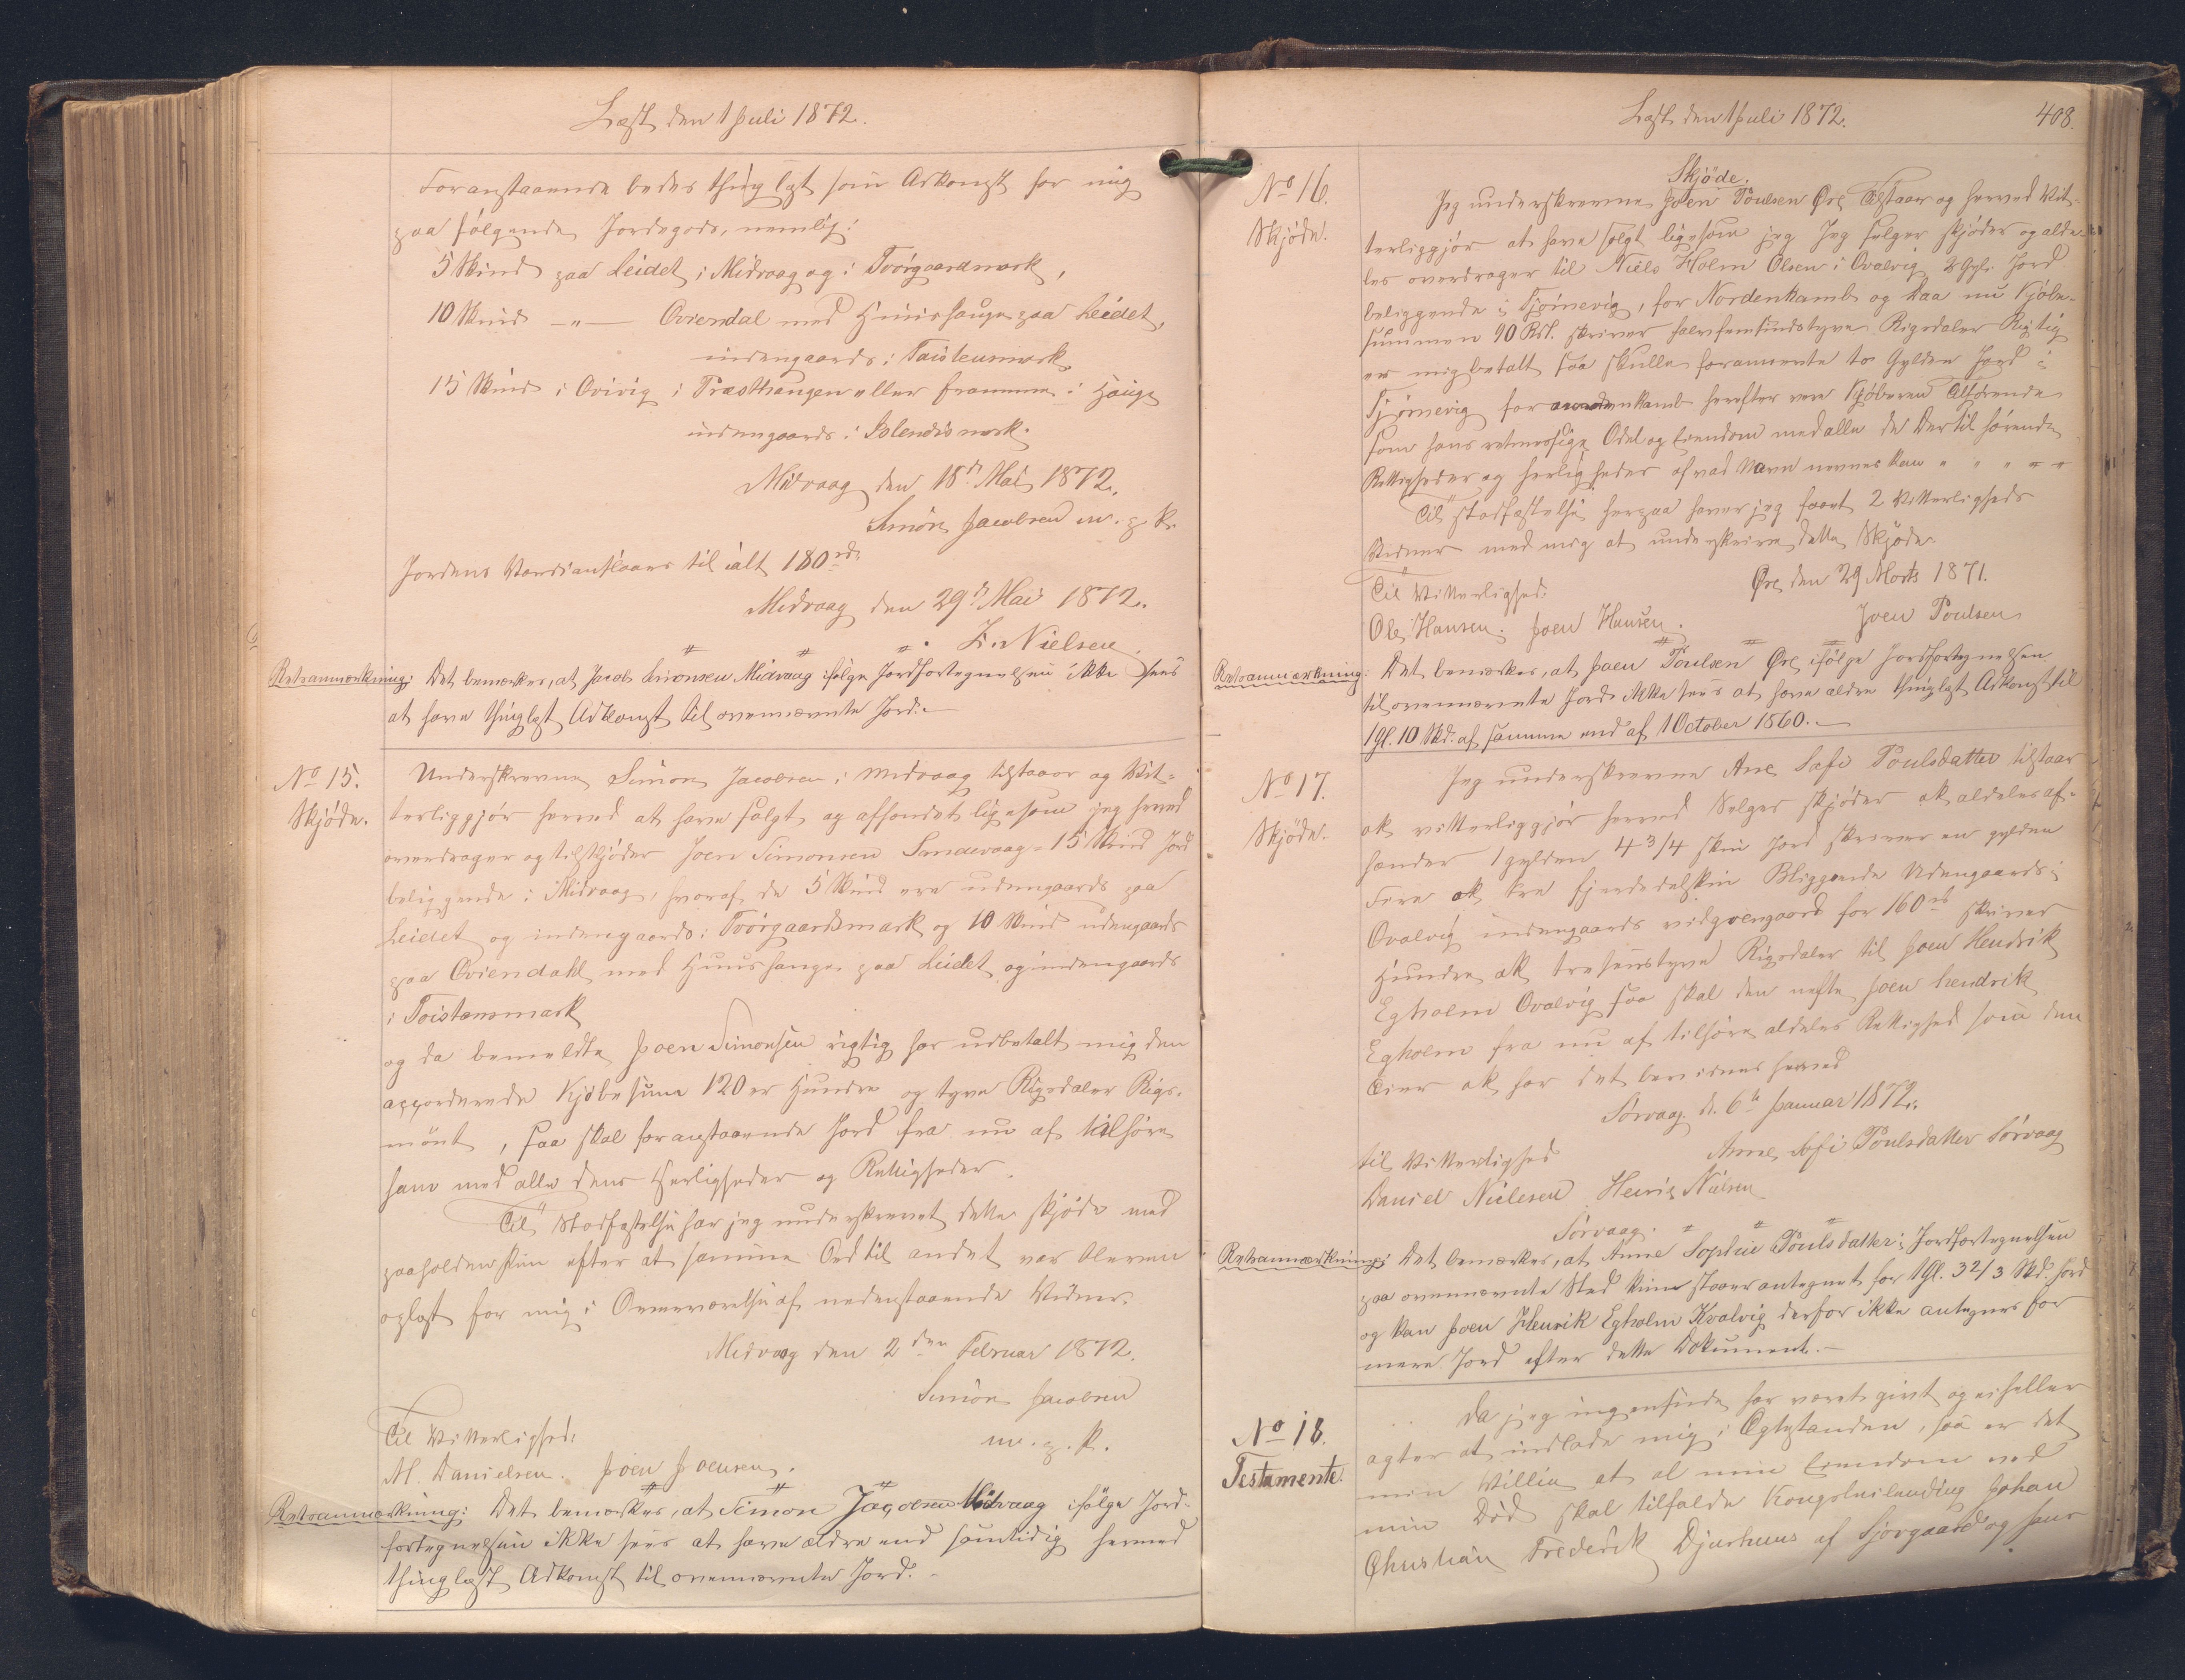 Læst den 1 Juli 1872.
Foranstaaende bedes thinglæst som Adkomst for mig
paa følgende Jordegods, nemlig:
5 Skind paa Leidet i Midvaag og i Tvørgaardmark,
10 Skind —"— Oviendal med Huushauge paa Leidet,
indengaards i Toisteinsmark
15 Skind i Ovivig i Præsthaugen eller framme i Hauge
indengaards i Islendismark.
Midvaag den 18d Mai 1872.
Simon Jacobsen m. p. P.
Jordens Værdi anslaaes til ialt 180 rd.
Midvaag den 29d Mai 1872.
Z. Nielsen
Retsanmærkning: Det bemærkes, at Jacob Simonsen Midvaag ifølge Jordfortegnelsen ikke sees
at have thinglæst Adkomst til ovennævnte Jord.—
No 15.
Skjøde.
Underskrevne Simon Jacobsen i Midvaag tilstaaer og Vit-
terliggjør herved at have solgt og afhændet ligesom jeg herved
overdrager og tilskjøder Joen Simonsen Sandevaag = 15 Skind Jord
beliggende i Midvaag, hvoraf de 5 Skind ere udengaards paa
Leidet og indengaards i Tvørgaardsmark og 10 Skind udengaards
paa Oviendahl med Huushauge paa Leidet og indengaards
i Toistensmark
og da bemeldte Joen Simonsen rigtig har udbetalt mig den
accorderede Kjøbesum 120 er Hundre og tyve Rigsdaler Rigs-
mønt, saa skal foranstaaende Jord fra nu af tilhøre
ham med alle dens Herligheder og Rettigheder.
Til Stadfæstelse har jeg underskrevet dette skjøde med
paaholden Pen efter at samme Ord til andet var bleven
oplæst for mig i Overværelse af nedenstaaende Vidner.
Midvaag den 2den Februar 1872.
Simon Jacobsen
m. p. P.
Til Vitterlighed:
M. Danielsen. Joen Joensen.
Retsanmærkning: Det bemærkes, at Simon Jacobsen Midvaag ifølge Jord-
fortegnelsen ikke sees at have ældre end samtidig hermed
thinglæst Adkomst til ovennævnte Jord.—
Læst den 1 Juli 1872.
408.
No 16.
Skjøde.
Skjøde.
Jeg underskrevne Joen Poulsen Øre Tilstaaer og herved Vit-
terliggjør at have solgt ligesom jeg Jeg selger skjøder og alde-
les overdrager til Niels Holm Olsen i Ovalvig 2 Gyl. Jord
beliggende i Tjørnevig, for Nordenkamb og Daa nu Kjøbe-
summen 90 Rd. skriver halvfemsindstyve Rigsdaler Rigtig
er mig betalt saa skulle forannævnte to Gylden Jord i
Tjørnevig for nordenkamb herefter være Kjøberen Tilhørende
som hans retmessige Odel og Eiendom med alle de Dertil hørende
Rettigheder og herligheder af vad Navn nevnes kan " " " " "
Til stadfæstelse herpaa haver jeg faaet 2 Vitterligheds
Vidner med mig at underskrive dette Skjøde.
Øre den 29 Marts 1871.
Til Vitterlighed:
Joen Poulsen
Ole Hansen. Joen Hansen.
Retsanmærkning: Det bemærkes, at Joen Poulsen Øre ifølge Jordfortegnelsen
til ovennævnte Jord ikke sees at have ældre thinglæst Adkomst til
1 Gl. 10 Skd. af samme end af 1 October 1860.—
No 17.
Skjøde.
Jeg underskrevne Ane Safi Poulsdatter tilstaar
ok vitterliggjør herved Selger skjøder ok aldeles af-
hænder 1 gylden 4 3/4 skin Jord skriver en gylden
Fire ok tre fjerdedelskin Bliggende Udengaards i
Ovalvig indengaards vidgoengaard for 160 rd skriver
Hundre ok tresinstyve Rigsdaler til Joen Hendrik
Egholm Ovalvig saa skal den nefte Joen hendrik
Egholm fra nu af tilhøre aldeles Rettighed som den
Eier ok har det bevidnes herved
Sørvaag. d. 6te Januar 1872.
Anne Sofi Poulsdatter Sørvaag
til Vitterlighed
Daniel Nielesen Heinis Nielsen
Sørvaag.
Retsanmærkning: Det bemærkes, at Anne Sophie Poulsdatter i Jordfortegnelsen
paa ovennævnte Sted kun staaer antegnet for 1 Gl. 3 2/3 Skd. Jord
og kan Joen Henrik Egholm Kvalvig derfor ikke antegnes for
mere Jord efter dette Dokument.—
No 18.
Testamente.
Da jeg ingensinde har været givt og ei heller
agter at indlade mig i Egtestanden, saa er det
min Villie at al min Eiendom ved
min Død skal tilfalde Kongsleilending Johan
Christian Frederik Djurhuus af Sjovgaard og hans